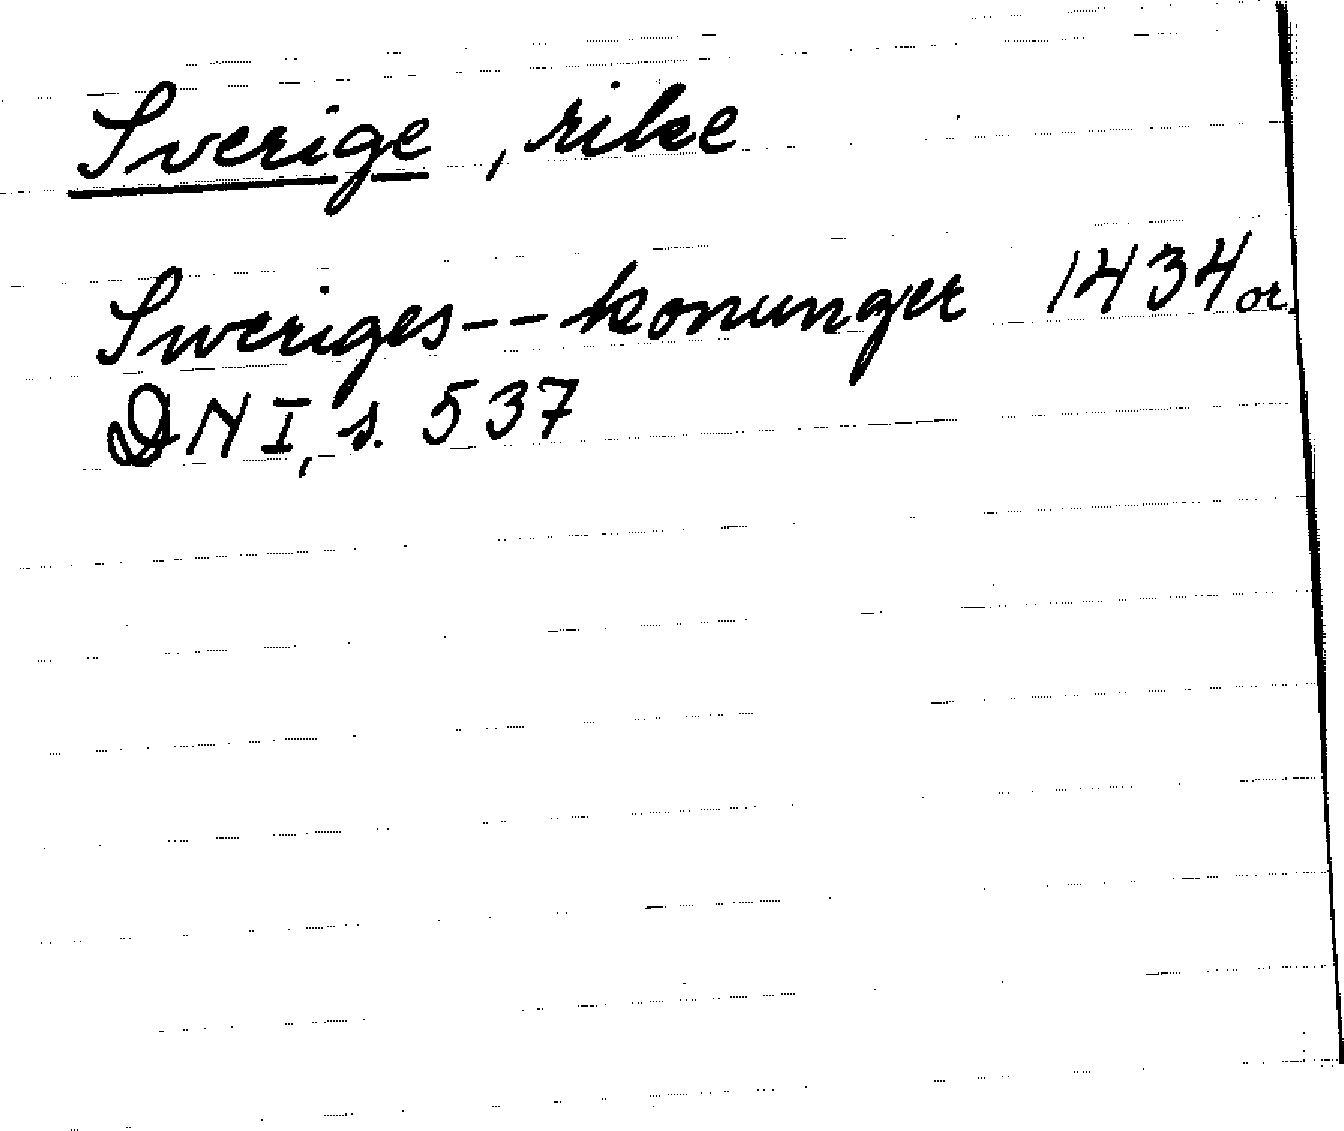 Sverige, rike
Sweriges -- konunger 1434 or.
DN I, s. 537